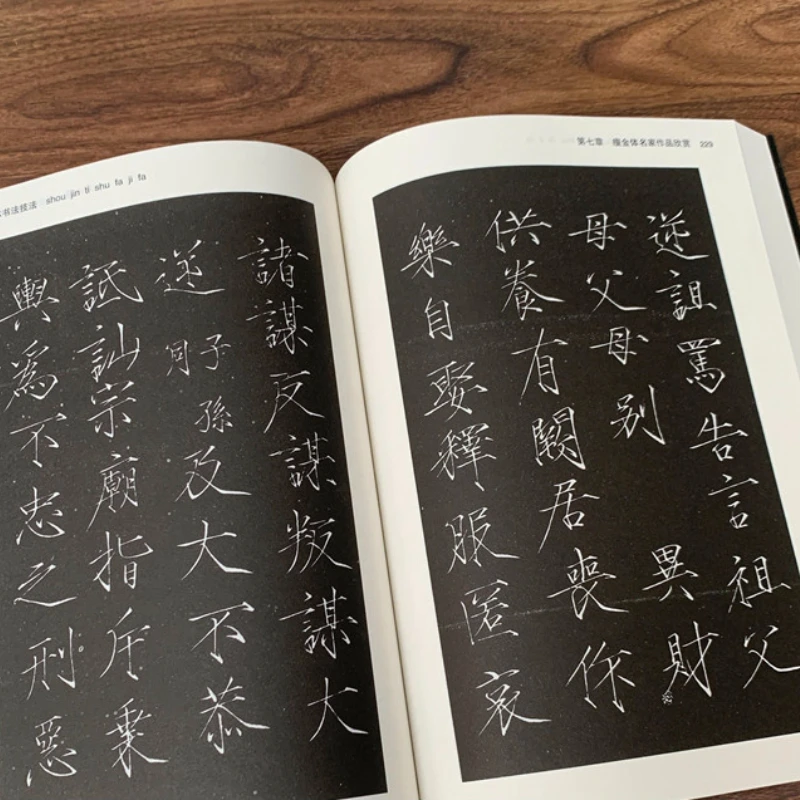 书法技法 shou jin ti shu fa ji fa
諸謀反謀叛謀大
逆子孫同及大不恭
詆訕宗廟指斥乗
輿為不忠之刑惡
第七章 瘦金体名家作品欣赏 229
逆詛罵告言祖父
母父母别異財
供養有闕居喪作
樂自娶釋服匿哀